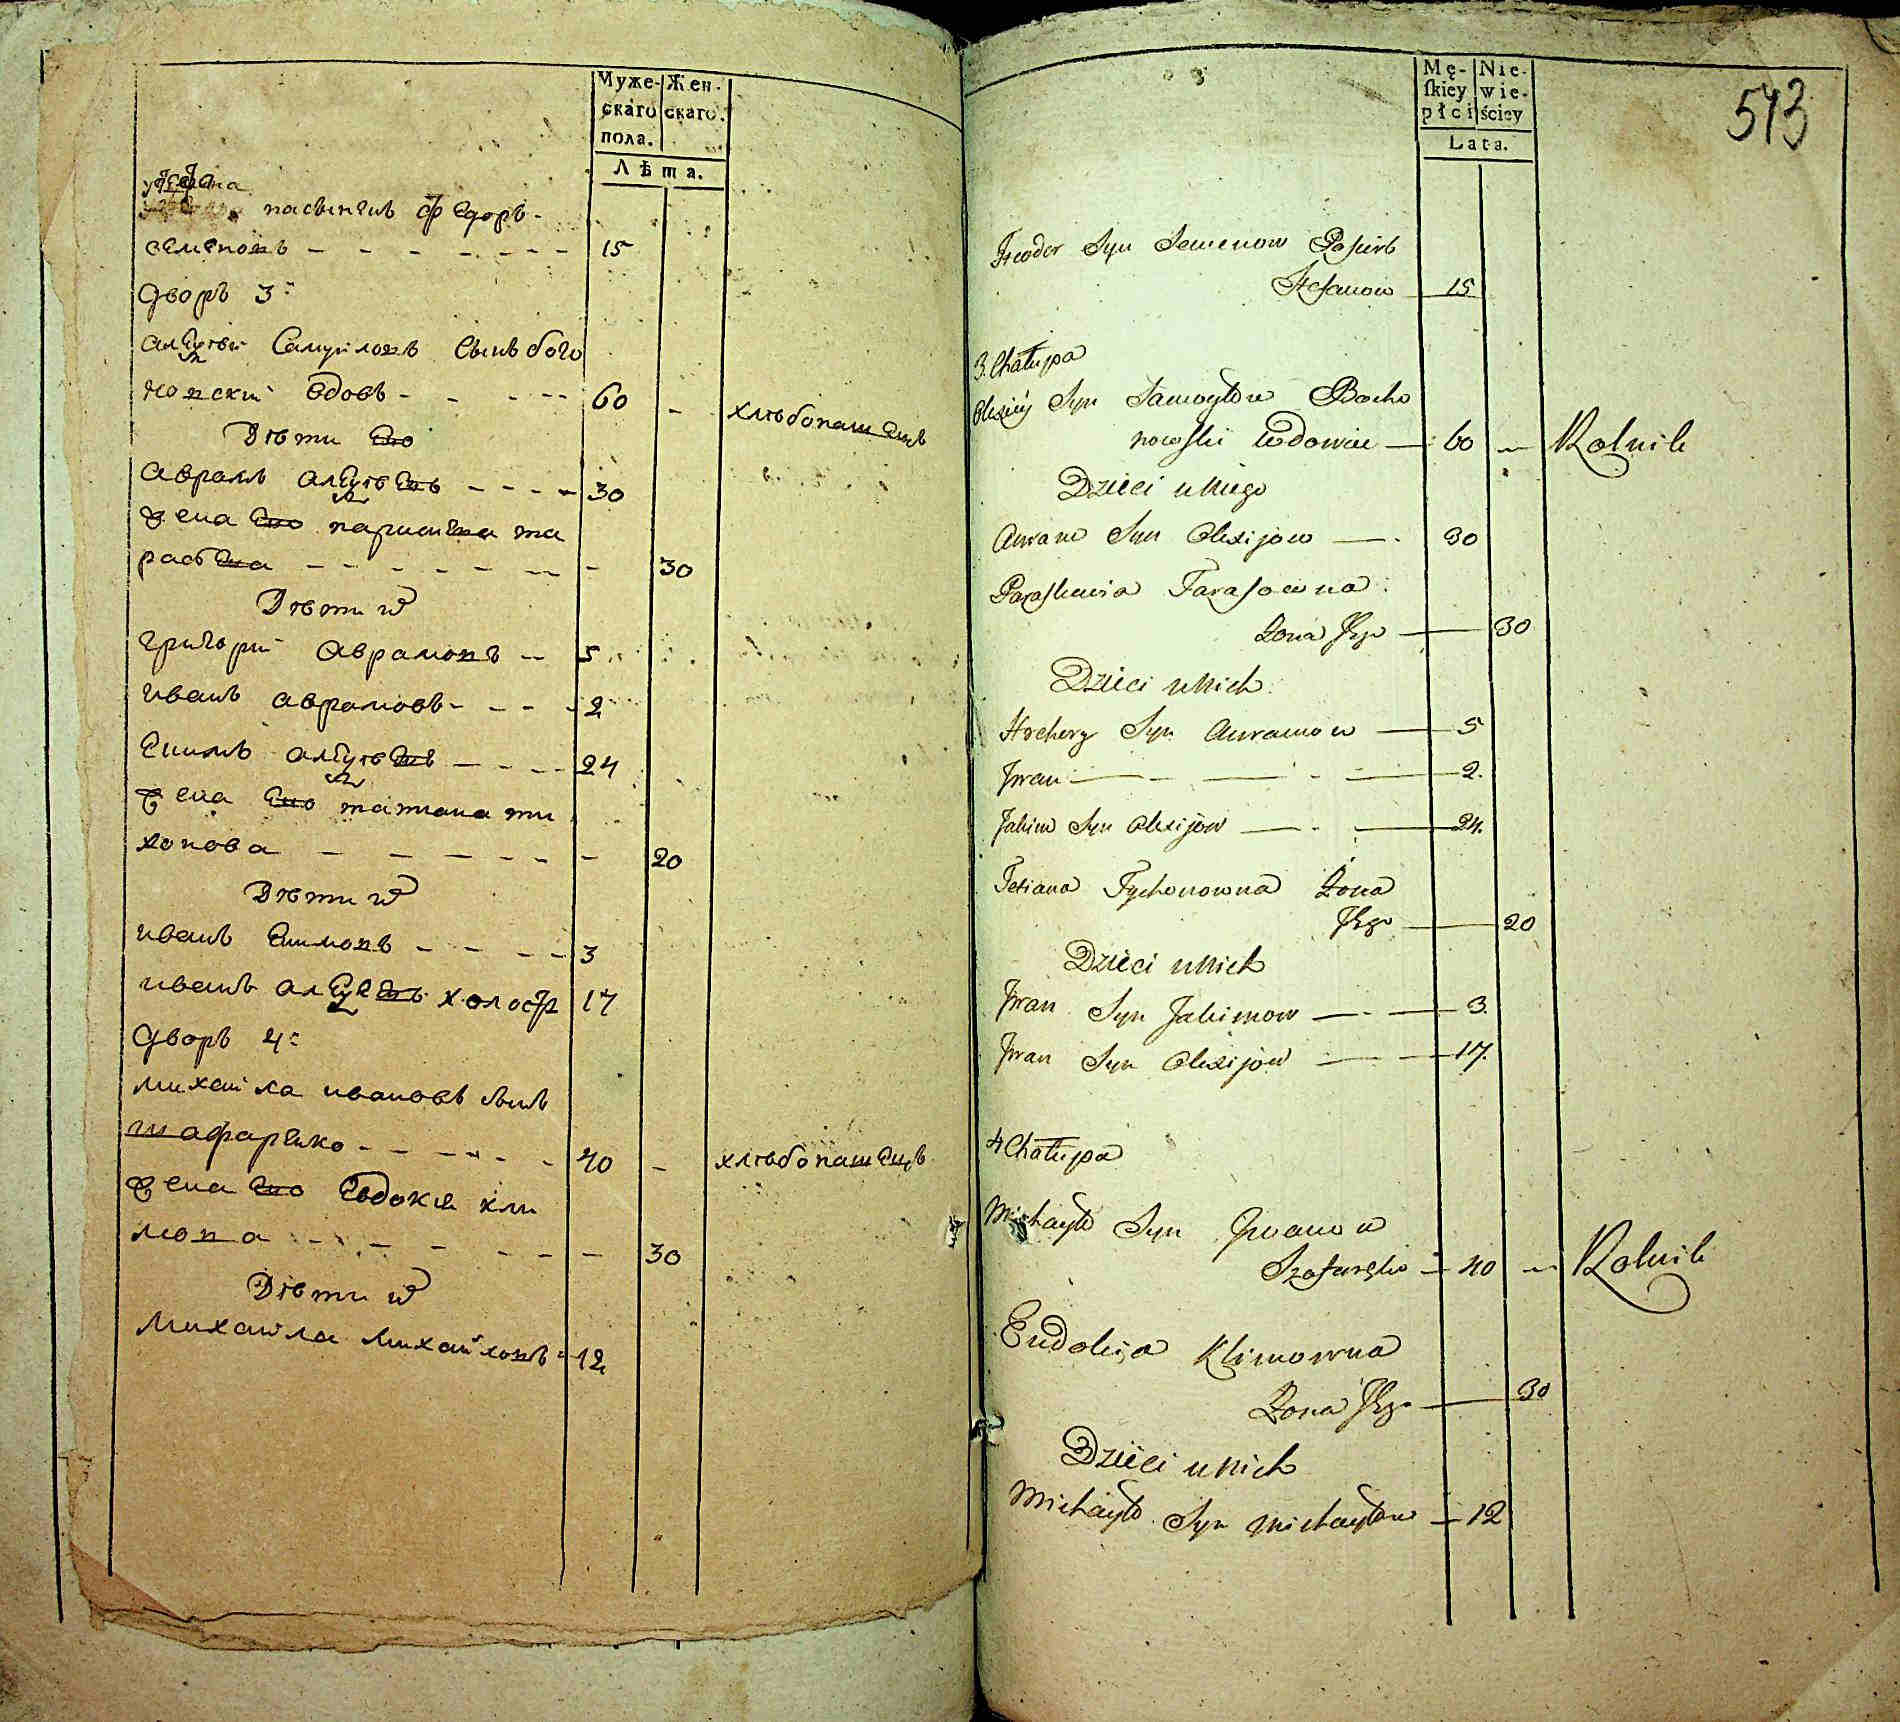 Муже-
скаго
пола.
Жен-
скаго.
Лѣта.
пасынокъ Федоръ -
семеновъ - - - - - - - 15
дворъ 3:
алексѣй Самуиловъ сынъ бого
новский вдовъ - - - - 60 - хлѣбопашецъ
Дѣти Его
аврамъ алексѣевъ - - - - 30
жена Его параскева та
расьева - - - - - - - - 30
Дѣти ихъ
григорий аврамовъ - 5
иванъ аврамовъ - - - - 2
Екимъ алексѣевъ - - - - 24
жена Его татиана ти
хонова - - - - - - - 20
Дѣти ихъ
иванъ Екимовъ - - - - 3
иванъ алексѣевъ холостъ 17
дворъ 4:
михайла ивановъ сынъ
шафаренко - - - - - - 40 - хлѣбопашецъ
жена Его Евдокия кли
мова - - - - - - - 30
Дѣти ихъ
михайла михайловъ - 12
513
Mę-
skiey
płci
Nie-
wie-
ściey
Lata.
Fteodor Syn Semenow Pasierb
Stefanow 15
3. Chałupa
Olexiy Syn Samoyłow Bocho
nowski wdowiec - 60 - Rolnik
Dzieci u Niego
Awram Syn Olexijow - 30
Paraskewia Tarasowna
Żona Jego - 30
Dzieci u Nich
Hrehory Syn Awramow - 5
Iwan - - - - 2.
Jakim Syn Olexijow - - 24.
Tetiana Tychonowna Żona
Jego - 20
Dzieci u Nich
Iwan Syn Jakimow - - 3.
Iwan Syn Olexijow - - 17.
4 Chałupa
Michayło Syn Iwanow
Szafarenko - 40 - Rolnik
Eudokija Klimowna
Żona Jego - 30
Dzieci u Nich
Michayło Syn Michayłow - 12